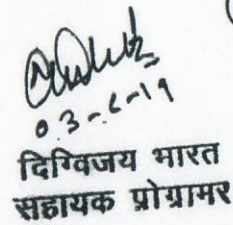 03-6-19
दिग्विजय भारत
सहायक प्रोग्रामर